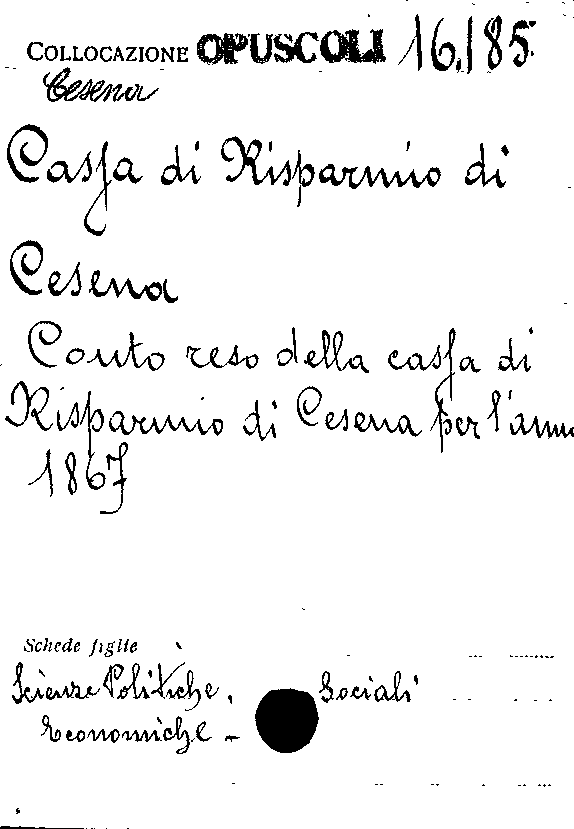 COLLOCAZIONE OPUSCOLI 16.185
Cesena
Cassa di Risparmio di
Cesena
Conto reso della cassa di
Risparmio di Cesena per l'anno
1867
Schede figlie
Scienze Politiche. Sociali
Economiche -